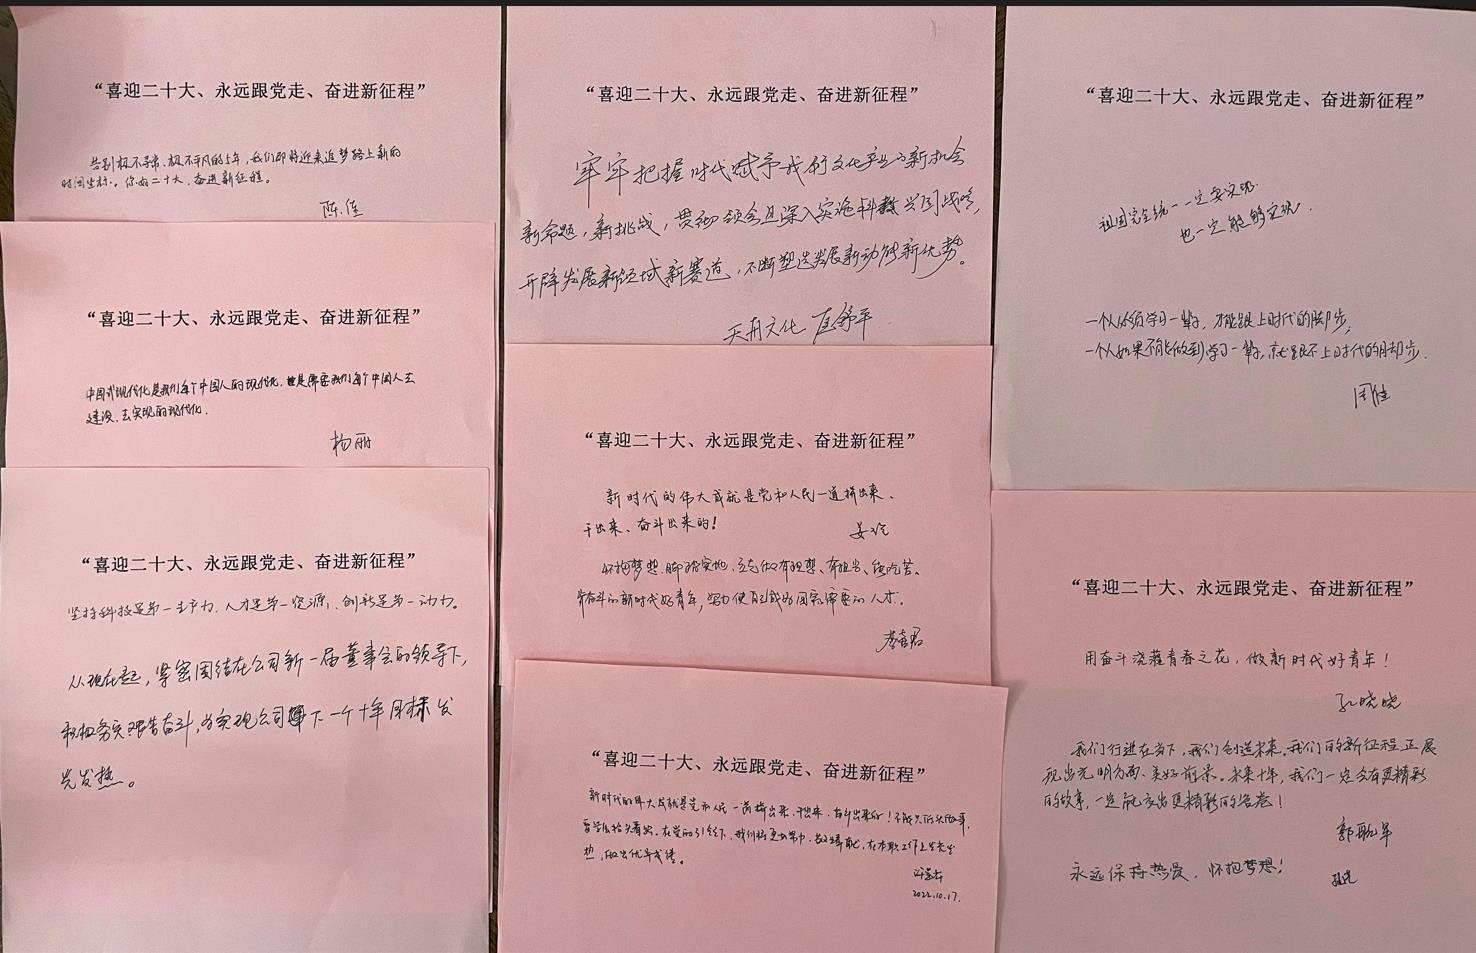 “喜迎二十大、永远跟党走、奋进新征程”
告别极不寻常、极不平凡的5年，我们即将迎来追梦路上新的
时间坐标。你好二十大，奋进新征程。
陈佳
“喜迎二十大、永远跟党走、奋进新征程”
中国式现代化是我们每个中国人的现代化，也是需要我们每个中国人去
建设、去实现的现代化。
杨丽
“喜迎二十大、永远跟党走、奋进新征程”
坚持科技是第一生产力、人才是第一资源、创新是第一动力。
从现在起，紧密团结在公司新一届董事会的领导下，
积极务实艰苦奋斗，为实现公司下一个十年目标发
光发热。
“喜迎二十大、永远跟党走、奋进新征程”
牢牢把握时代赋予我们文化产业的新机会
新命题，新挑战，贯彻领会且深入实施科教兴国战略，
开辟发展新领域新赛道，不断塑造发展新动能新优势。
天舟文化
“喜迎二十大、永远跟党走、奋进新征程”
新时代的伟大成就是党和人民一道拼出来、
干出来、奋斗出来的！
姜玲
怀抱梦想、脚踏实地，立志做有理想、有担当、能吃苦、
肯奋斗的新时代好青年，努力使自己成为国家需要的人才。
李喜君
“喜迎二十大、永远跟党走、奋进新征程”
新时代的伟大成就是党和人民一道拼出来、干出来、奋斗出来的！不能只低头做事，
要学会抬头看路。在党的引领下，我们将更加努力，在本职工作上发光发
热，做出优异成绩。
2022.10.17.
“喜迎二十大、永远跟党走、奋进新征程”
祖国完全统一一定要实现.
也一定能够实现.
一个人必须学习一辈子，才能跟上时代的脚步，
一个人如果不能做到学习一辈子，就跟不上时代的脚步.
周佳
“喜迎二十大、永远跟党走、奋进新征程”
用奋斗浇灌青春之花，做新时代好青年！
孔晓晓
我们行进在当下，我们创造未来。我们的新征程正展
现出光明方面、美好前景。未来十年，我们一定会有更精彩
的故事，一定能交出更精彩的答卷！
永远保持热爱，怀抱梦想！